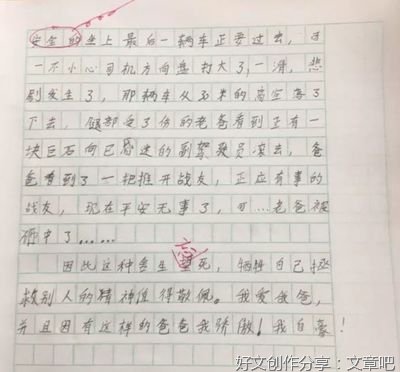 安全的坐上最后一辆车正要过去,可
一不小心司机方向盘打大了,一滑,悲
剧发生了,那辆车从30米的高空落了
下去,腿部受了份的老爸看到正有一
块巨石向已昏迷的副驾驶员滚去,爸
爸看到了一把推开战友,正应有事的
战友,现在平安无事了,可……老爸被
砸中了……
因此这种舍生忘死,牺牲自己拯
救别人的精神值得敬佩。我爱我爸,
并且因有这样的爸爸我骄傲!我自豪!
好文创作分享:文章吧